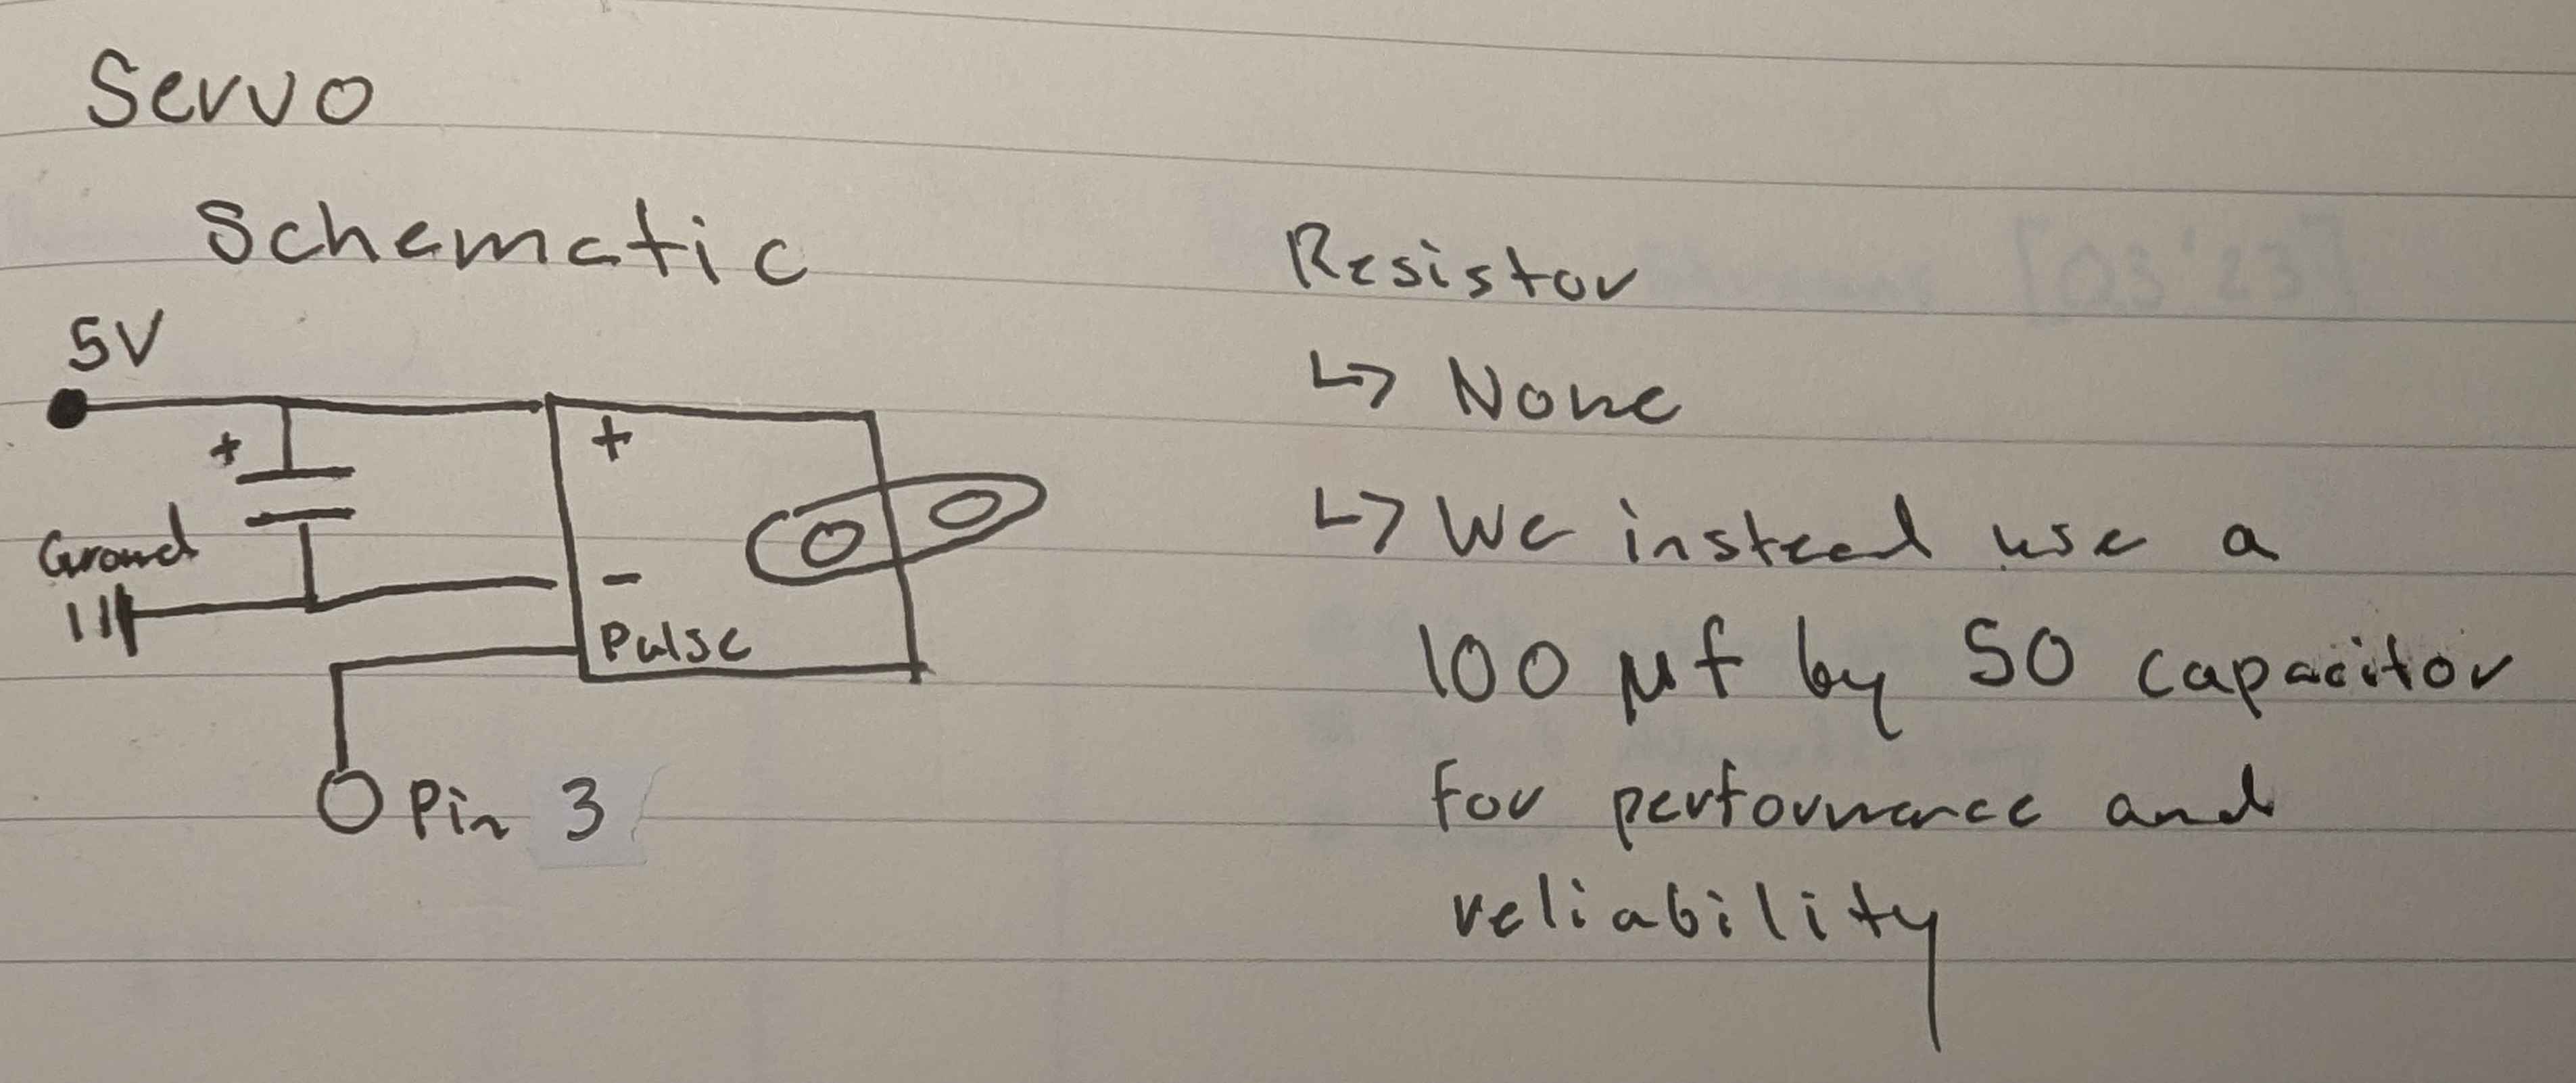 Servo
Schematic
5V
+
+
Ground
-
Pulse
Pin 3
Resistor
↳ None
↳ We instead use a
100 µf by 50 capacitor
for performance and
reliability
[Q3'23]